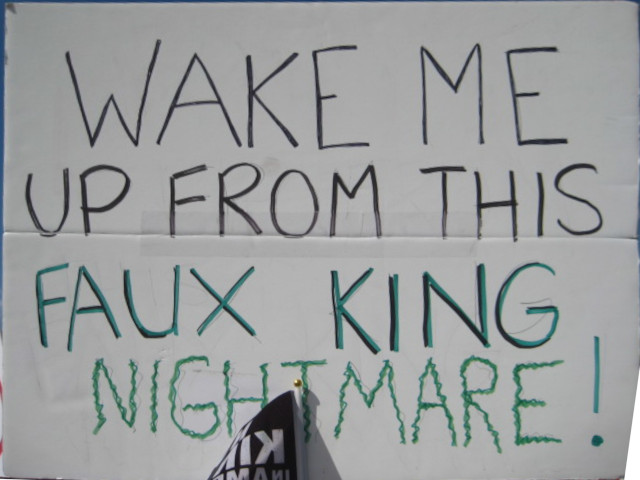 WAKE ME
UP FROM THIS
FAUX KING
NIGHTMARE!